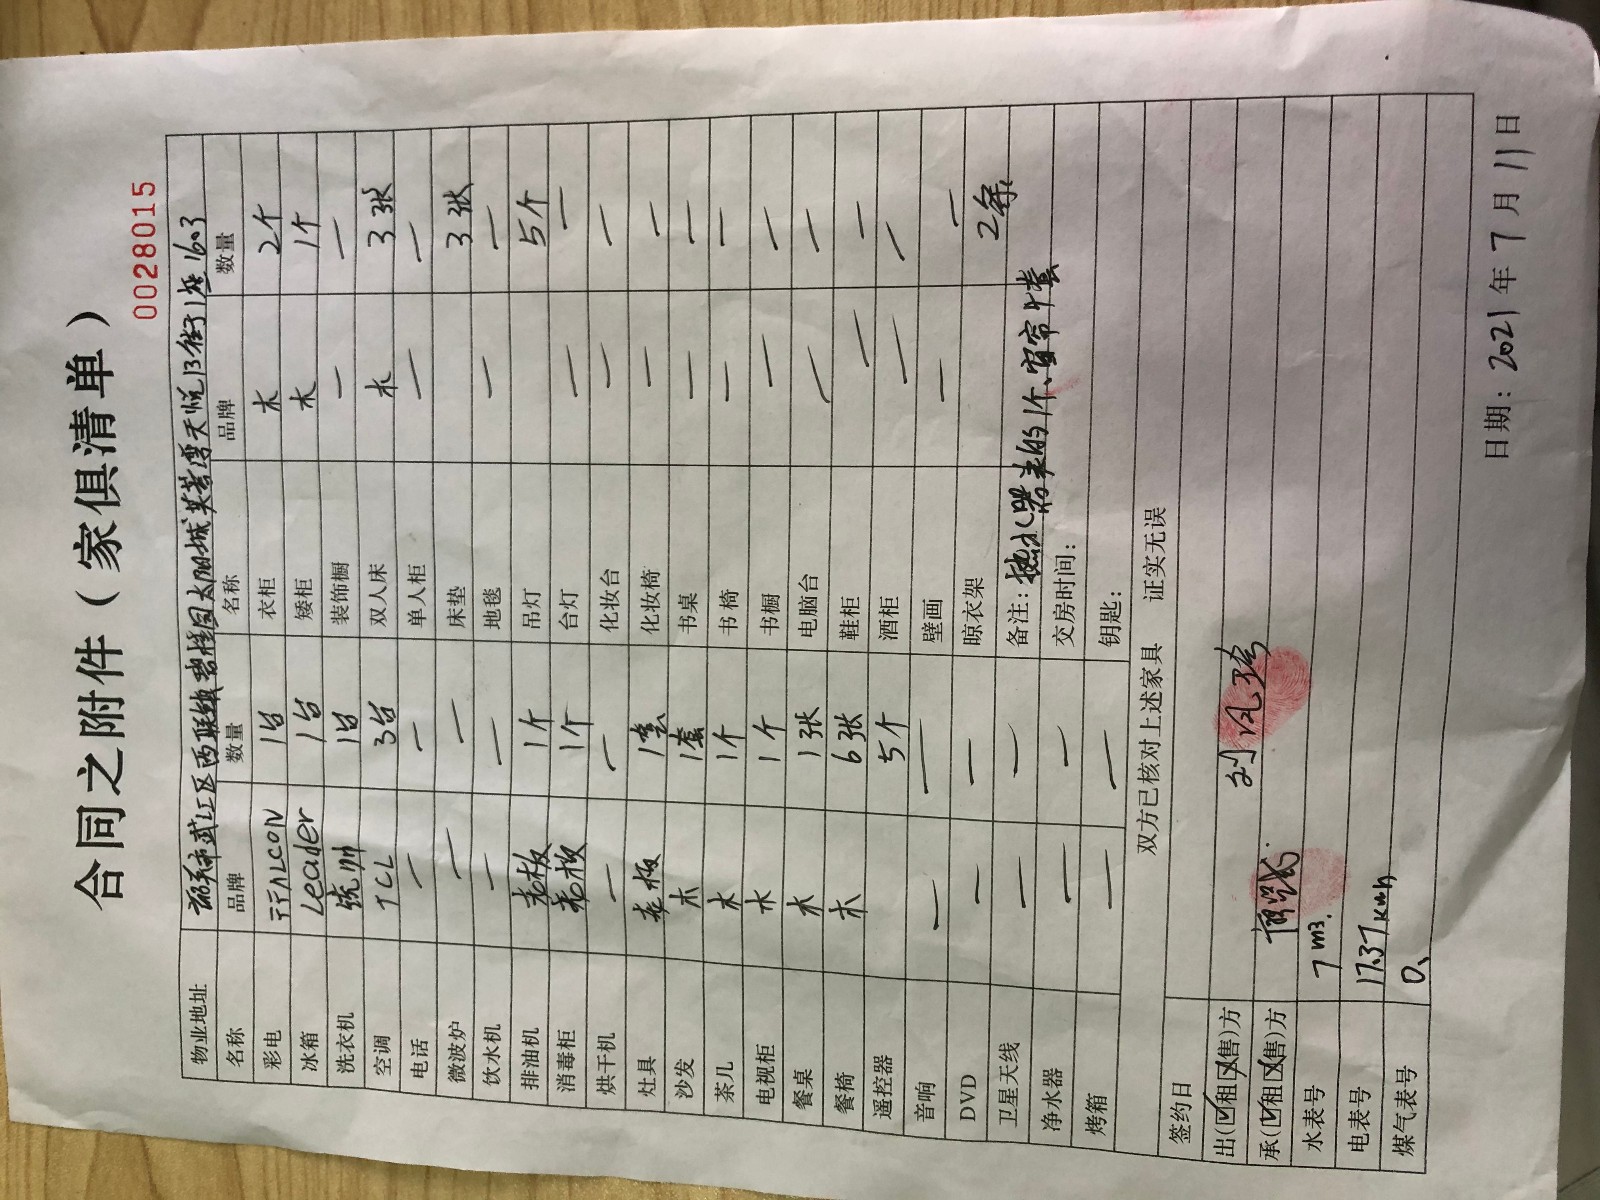 合同之附件（家俱清单）
0028015
物业地址 韶关市武江区西联镇碧桂园太阳城芙蓉湾天悦13街1座1603
名称 品牌 数量 名称 品牌 数量
彩电 1台 衣柜 木 2个
冰箱 Leader 1台 矮柜 木 1个
洗衣机 统帅 1台 装饰橱 — —
空调 TCL 3台 双人床 木 3张
电话 — — 单人柜 — —
微波炉 — — 床垫 3张
饮水机 — — 地毯 — —
排油机 老板 1个 吊灯 5个
消毒柜 老板 1个 台灯 — —
烘干机 — — 化妆台 — —
灶具 老板 1套 化妆椅 — —
沙发 木 1套 书桌 — —
茶几 木 1个 书椅 — —
电视柜 木 1个 书橱 — —
餐桌 木 1张 电脑台 — —
餐椅 木 6张 鞋柜 — —
遥控器 5个 酒柜 — —
音响 — — 壁画 — —
DVD — 晾衣架 2条
卫星天线 — — 备注：热水器美的1个、窗帘1套
净水器 — — 交房时间：
烤箱 — — 钥匙：
双方已核对上述家具 证实无误
签约日
出(☑租☒售)方 刘
承(☑租☒售)方
水表号 7m³.
电表号 17.37kwh
煤气表号 0、
日期：2021年7月11日